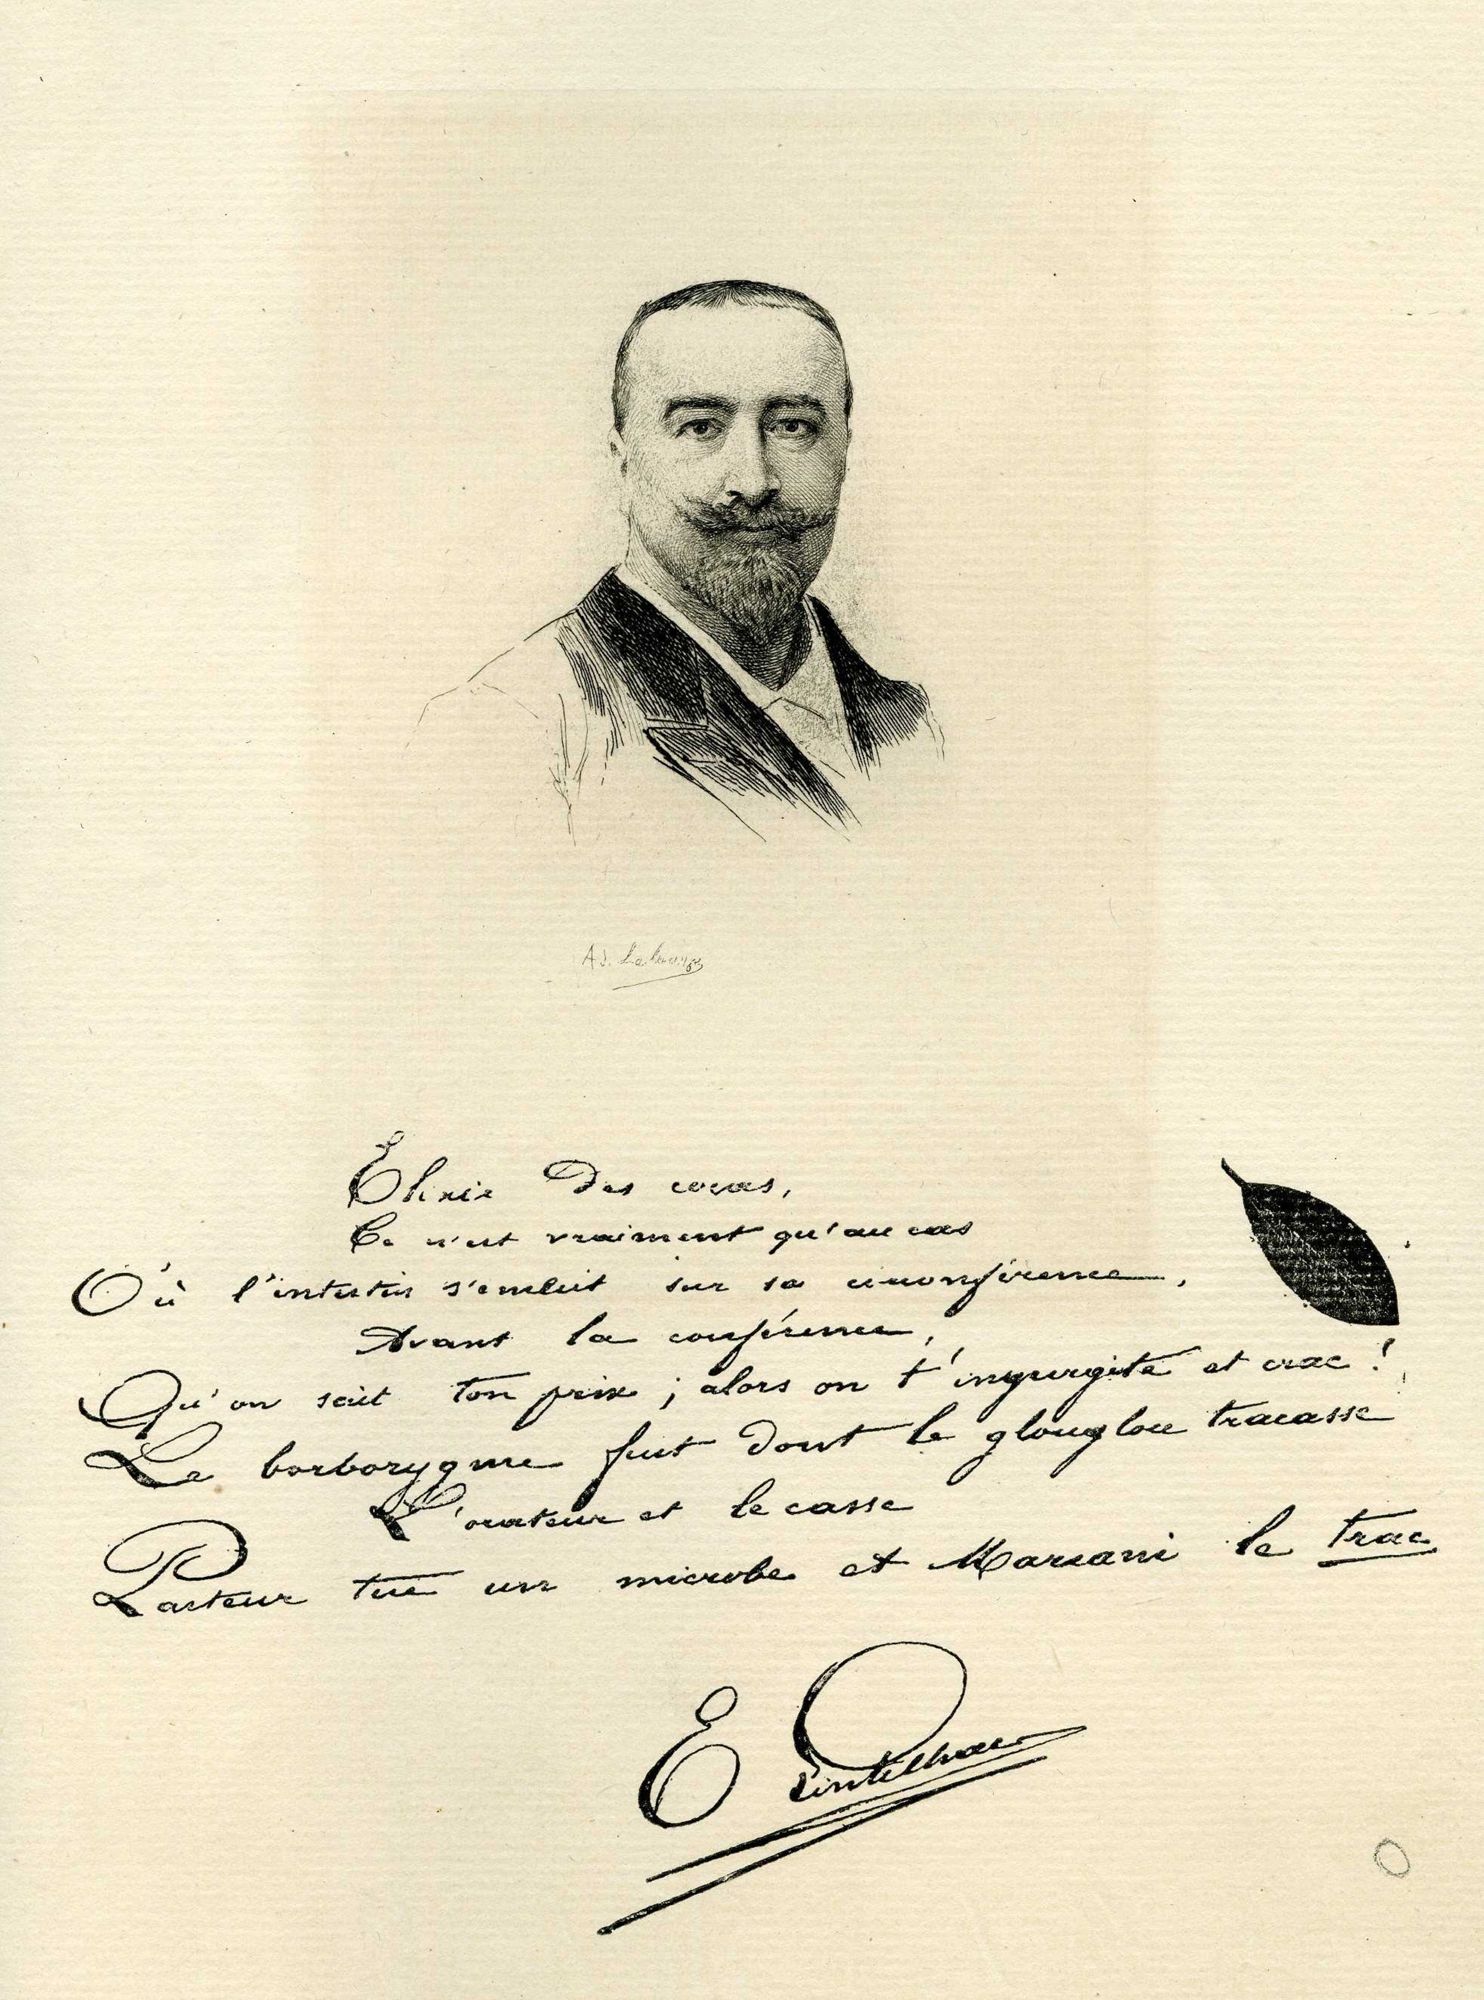 Ad. Lalauze
Élixir des cocas,
Ce n'est vraiment qu'au cas
Où l'intestin s'enduit sur sa circonférence,
Avant la conférence,
Qu'on sait ton prix ; alors on t'ingurgite et crac !
Le borborygme fuit dont le glouglou tracasse
L'orateur et le casse
Pasteur tue un microbe et Mariani le trac
E Lintilhac